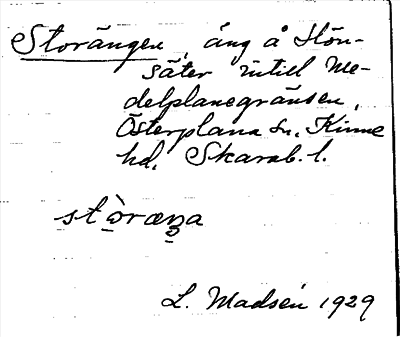 Storängen, äng å Hön-
säter intill Me-
delplanegränsen,
Österplana sn, Kinne
hd, Skarab. l.
stòræŋa
L. Madsén 1929